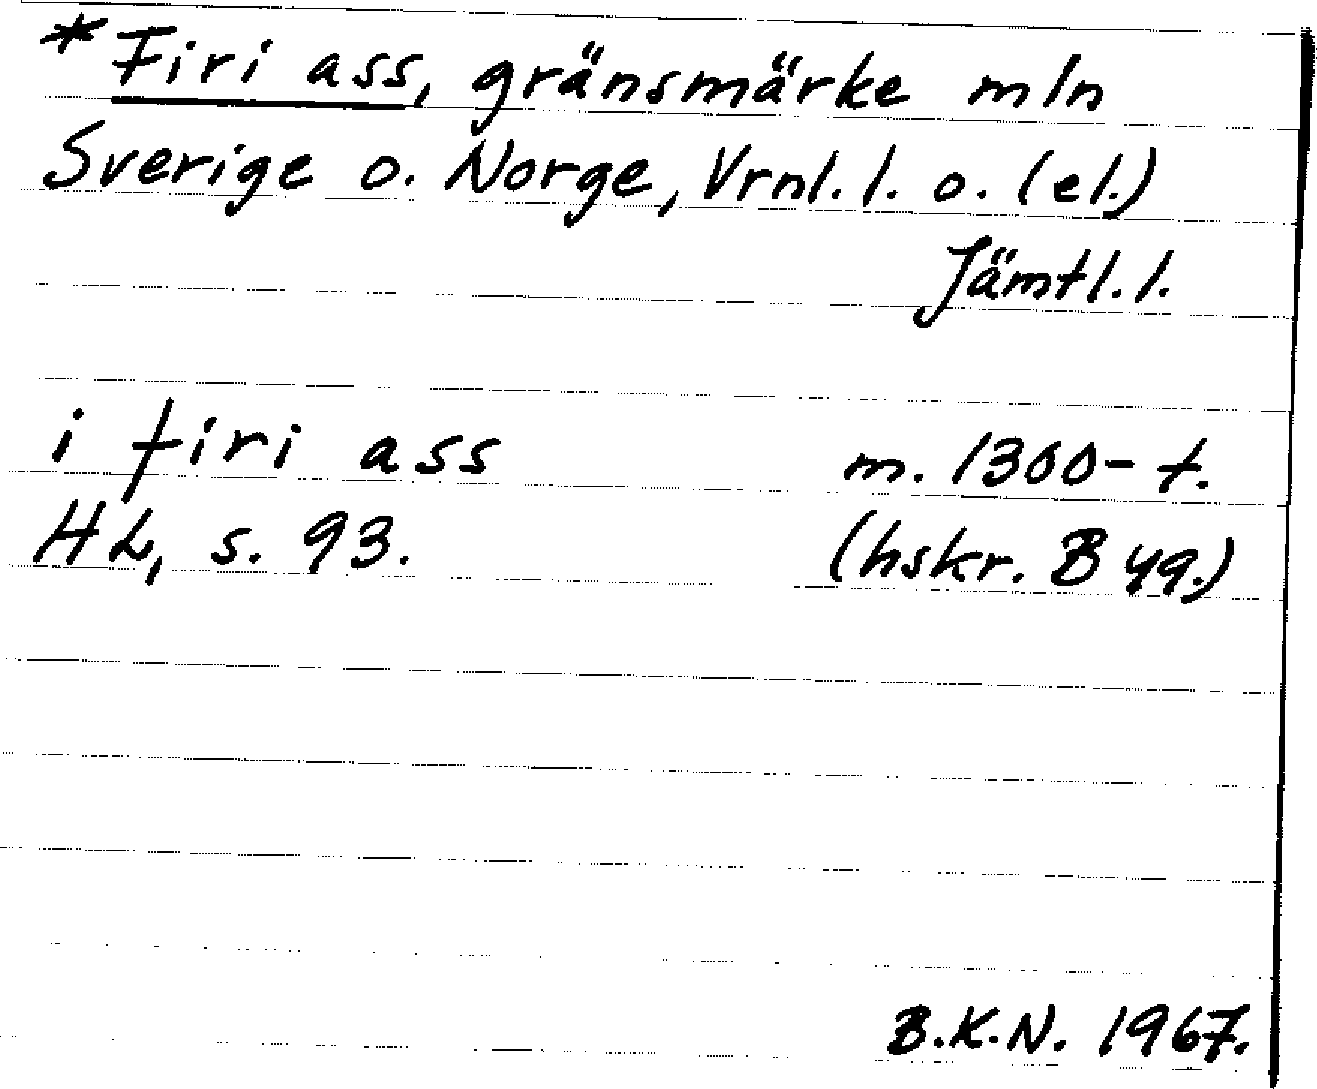 * Firi ass, gränsmärke mln
Sverige o. Norge, Vrnl. l. o. (el.)
Jämtl. l.
i firi ass m. 1300-t.
HL, s. 93. (hskr. B 49.)
B.K.N. 1967.